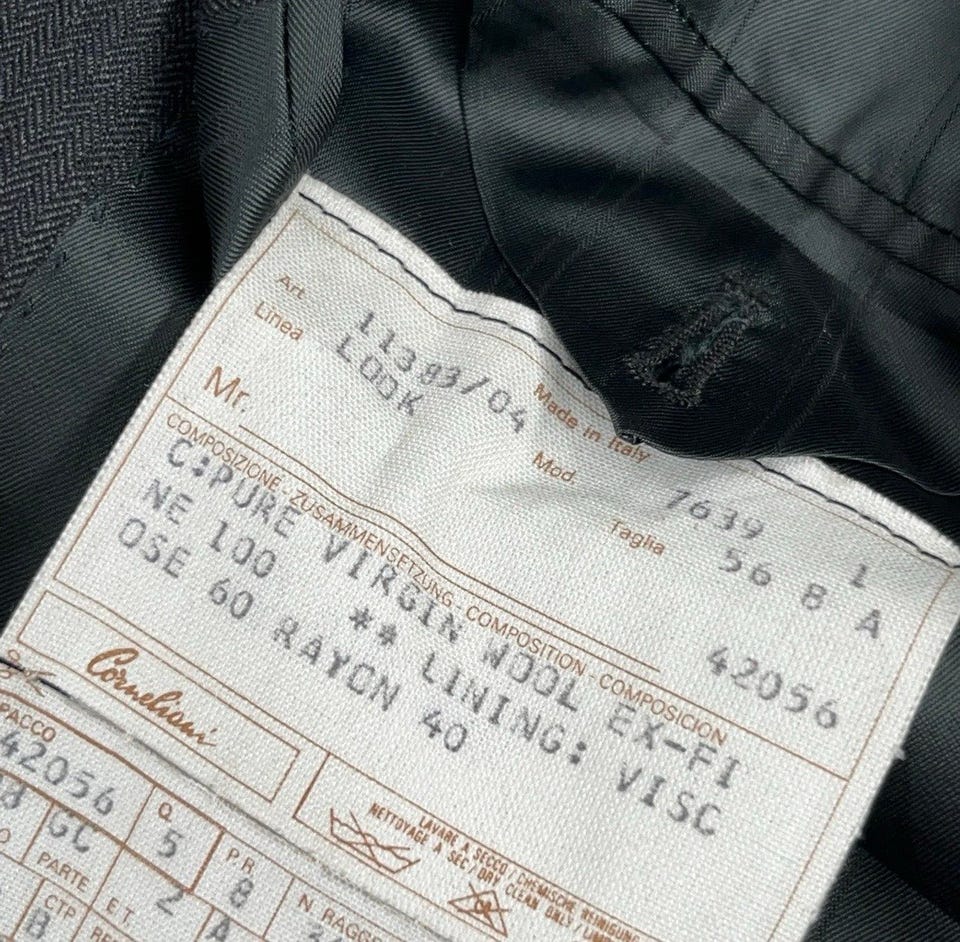 Art 11393/04 Made in Italy
Linea LOOK Mod. 7639 1
Mr. Taglia 56 8 A
42056
COMPOSIZIONE - ZUSAMMENSETZUNG - COMPOSITION - COMPOSICION
C:PURE VIRGIN WOOL EX-FI
NE 100 ** LINING: VISC
OSE 60 RAYON 40
Corneliani
LAVARE A SECCO / CHEMISCHE REINIGUNG
NETTOYAGE A SEC / DRY CLEAN ONLY
PACCO
42056
Q. 5
GC
P R 8
PARTE 2
CTP
8
E.T.
A
N. RAGGE